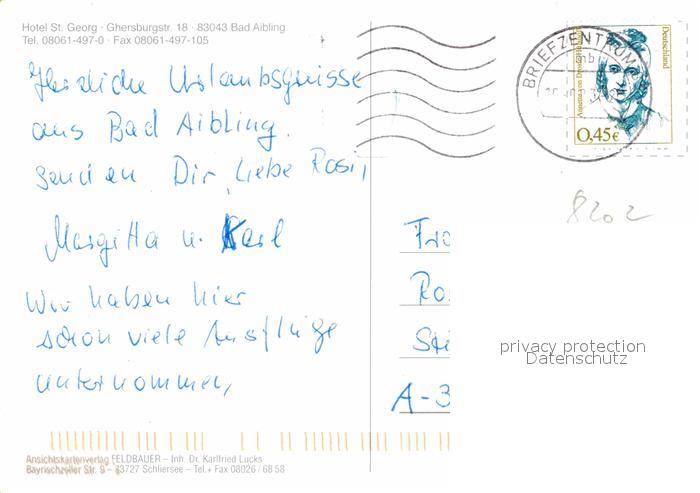 Hotel St. Georg · Ghersburgstr. 18 · 83043 Bad Aibling
Tel. 08061-497-0 · Fax 08061-497-105
Herzliche Urlaubsgrüsse
aus Bad Aibling.
senden Dir, liebe Rosi,
Margitta u. Karl
Wir haben hier
schon viele Ausflüge
unternommen,
BRIEFZENTRUM
Deutschland
0,45€
8202
Fra
Ro
Ste
A-3
privacy protection
Datenschutz
Ansichtskartenverlag FELDBAUER – Inh. Dr. Karlfried Lucks
Bayrischzeller Str. 9 – 83727 Schliersee – Tel.+ Fax 08026 / 68 58